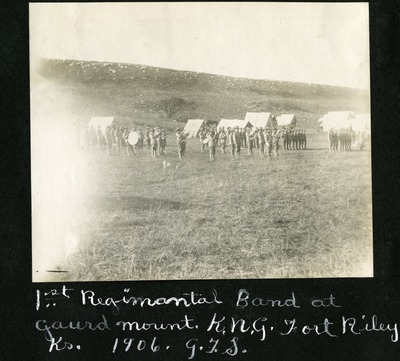 1st Reg'imantal Band at
gaurd mount. K.N.G. Fort Riley
Ks. 1906. G.F.S.